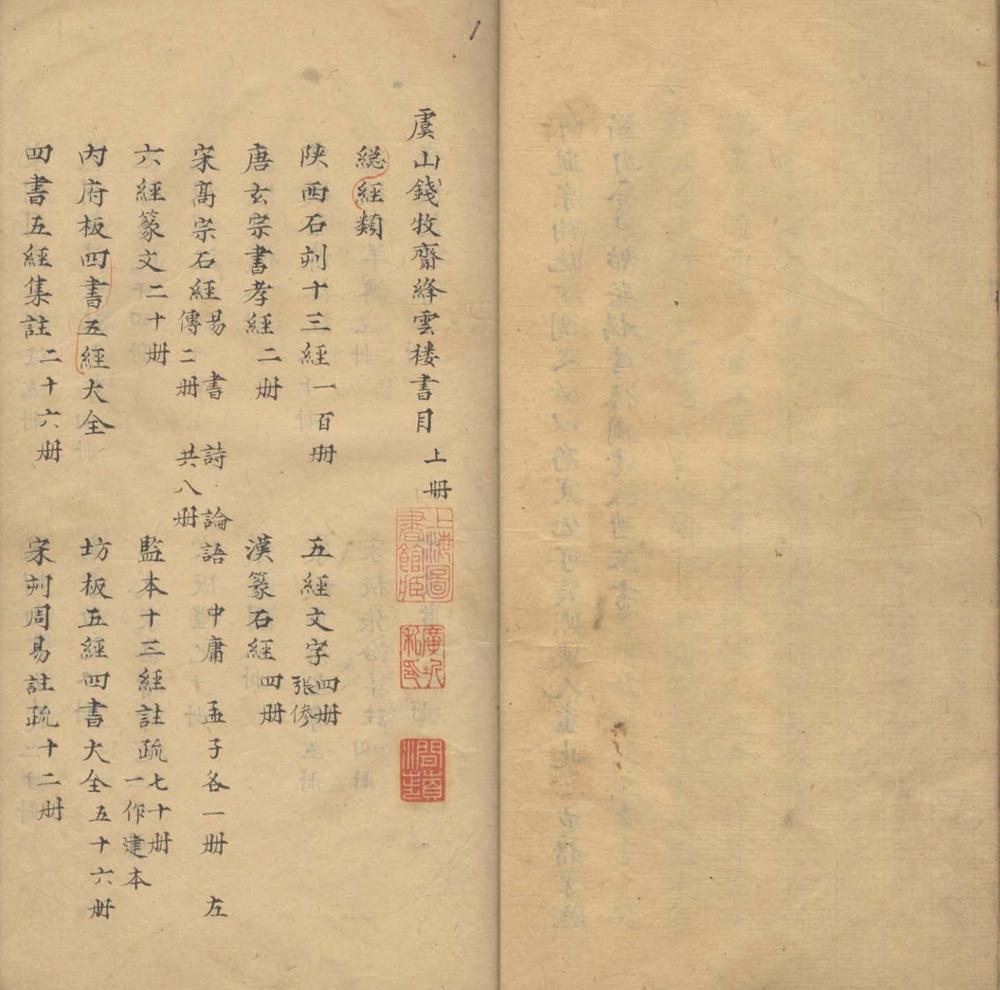 虞山錢牧齋絳雲楼書目 上册
上海圖書館藏
総經類
陝西石刻十三經一百册 五經文字 四册 張參
唐玄宗書孝經二册 漢篆石經四册
宋髙宗石經 易 書 詩 論語 中庸 孟子各一册 左
傳二册 共八册
六經篆文二十册 監本十三經註疏 七十册 一作建本
内府板四書五經大全 坊板五經四書大全五十六册
四書五經集註二十六册 宋刻周易註疏十二册